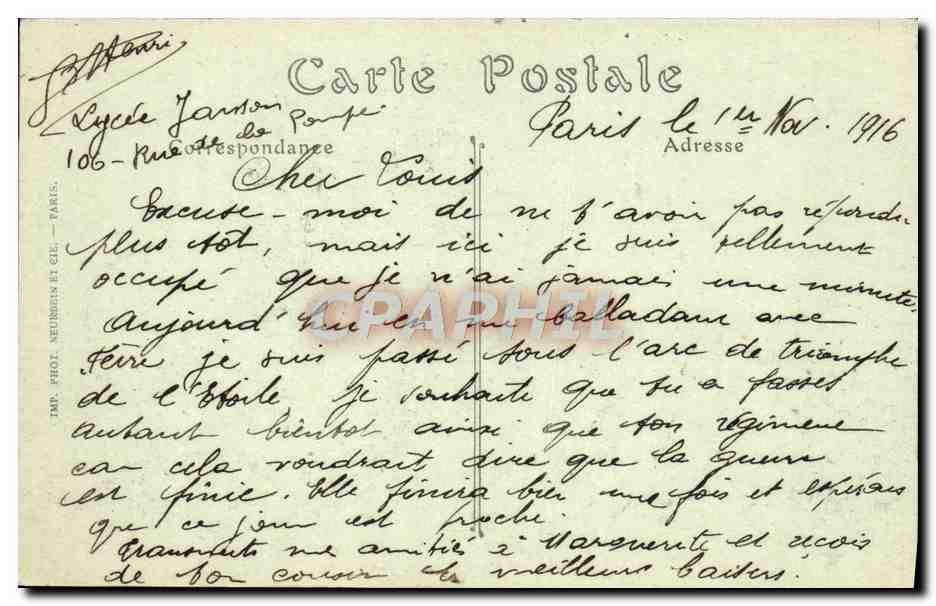 Henri
Carte Postale
Lycée Janson
106 - Rue de la Pompe
Paris le 1er Nov. 1916
Correspondance
Adresse
Cher Louis
Excuse-moi de ne t'avoir pas répondu
plus tôt, mais ici je suis tellement
occupé que je n'ai jamais une minute.
Aujourd'hui en me balladant avec
je suis passé sous l'arc de triomphe
de l'Etoile je souhaite que tu en fasses
autant bientot ainsi que ton régiment
car cela voudrait dire que la guerre
est finie. Elle finira bien une fois et espérons
que ce jour est proche.
Transmets mes amitiés à Marguerite et reçois
de ton cousin les meilleurs baisers.
IMP. PHOT. NEURDEIN ET CIE. — PARIS.
CPAPHIL